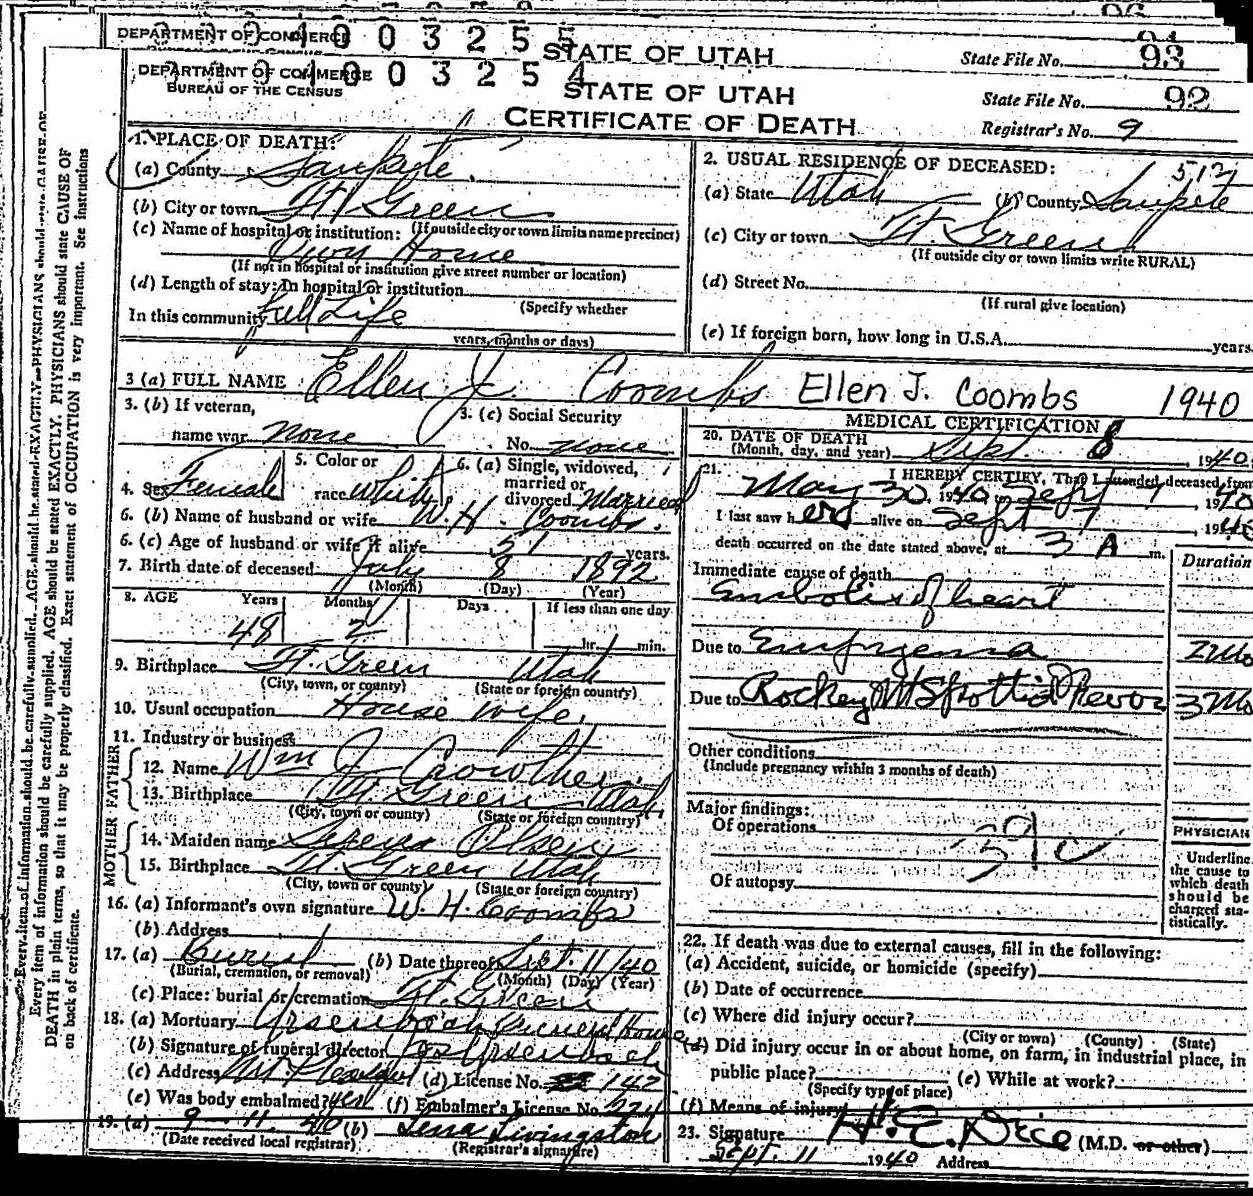 DEPARTMENT OF COMMERCE STATE OF UTAH State File No. 93
DEPARTMENT OF COMMERCE STATE OF UTAH State File No. 92
BUREAU OF THE CENSUS
CERTIFICATE OF DEATH Registrar's No. 9
1. PLACE OF DEATH:
(a) County Sanpete
(b) City or town Ft Green
(c) Name of hospital or institution: (If outside city or town limits name precinct)
Own Home
(If not in hospital or institution give street number or location)
(d) Length of stay: In hospital or institution
(Specify whether
In this community Full Life
years, months or days)
2. USUAL RESIDENCE OF DECEASED: 512
(a) State Utah (b) County Sanpete
(c) City or town Ft. Green
(If outside city or town limits write RURAL)
(d) Street No.
(If rural give location)
(e) If foreign born, how long in U.S.A. years
3 (a) FULL NAME Ellen J. Coombs Ellen J. Coombs 1940
3. (b) If veteran, name war none
3. (c) Social Security No. none
4. Sex Female
5. Color or race White
6. (a) Single, widowed, married or divorced Married
6. (b) Name of husband or wife W. H. Coombs.
6. (c) Age of husband or wife if alive 51 years.
7. Birth date of deceased July 8 1892
(Month) (Day) (Year)
8. AGE Years Months Days If less than one day
48 2 hr. min.
9. Birthplace Ft. Green Utah
(City, town, or county) (State or foreign country)
10. Usual occupation House wife
11. Industry or business
FATHER
12. Name Wm J Crowther
13. Birthplace Ft. Green Utah
(City, town or county) (State or foreign country)
MOTHER
14. Maiden name Serena Olsen
15. Birthplace Ft. Green Utah
(City, town or county) (State or foreign country)
16. (a) Informant's own signature W. H. Coombs
(b) Address
17. (a) Burial (b) Date thereof Sept. 11/40
(Burial, cremation, or removal) (Month) (Day) (Year)
(c) Place: burial or cremation Ft. Green
18. (a) Mortuary Ursenbach Funeral Home
(b) Signature of funeral director Ursenbach
(c) Address Mt Pleasant (d) License No. 142
(e) Was body embalmed? yes (f) Embalmer's License No. 224
19. (a) 9-11-40 (b) Lena Livingston
(Date received local registrar) (Registrar's signature)
MEDICAL CERTIFICATION
20. DATE OF DEATH
(Month, day, and year) Sept. 8, 1940.
21. I HEREBY CERTIFY, That I attended deceased from
May 30, 1940 to Sept 7, 1940
I last saw her alive on Sept 7, 1940
death occurred on the date stated above, at 3 A m.
Duration
Immediate cause of death
Embolis of heart
Due to Empyema 2 Mo
Due to Rockey Mt Spottid Fevor 3 Mo
Other conditions
(Include pregnancy within 3 months of death)
Major findings:
Of operations
Of autopsy
PHYSICIAN
Underline
the cause to
which death
should be
charged sta-
tistically.
22. If death was due to external causes, fill in the following:
(a) Accident, suicide, or homicide (specify)
(b) Date of occurrence
(c) Where did injury occur?
(City or town) (County) (State)
(d) Did injury occur in or about home, on farm, in industrial place, in
public place? (e) While at work?
(Specify type of place)
(f) Means of injury
23. Signature (M.D. or other)
Sept. 11 1940 Address
Every item of information should be carefully supplied. AGE should be stated EXACTLY. PHYSICIANS should state CAUSE OF
DEATH in plain terms, so that it may be properly classified. Exact statement of OCCUPATION is very important. See instructions
on back of certificate.